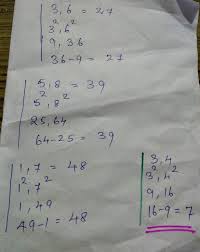 3,6 = 27
3²,6²
9,36
36-9 = 27
5,8 = 39
5²,8²
25,64
64-25 = 39
1,7 = 48
1²,7²
1,49
49-1=48
3,4
3²,4²
9,16
16-9=7